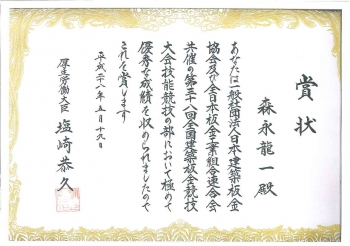 賞状
森永龍一殿
あなたは一般社団法人日本建築板金
協会及び全日本板金工業組合連合会
共催の第三十八回全国建築板金競技
大会技能競技の部において極めて
優秀な成績を収められましたので
これを賞します
平成二十八年五月十九日
厚生労働大臣 塩崎恭久